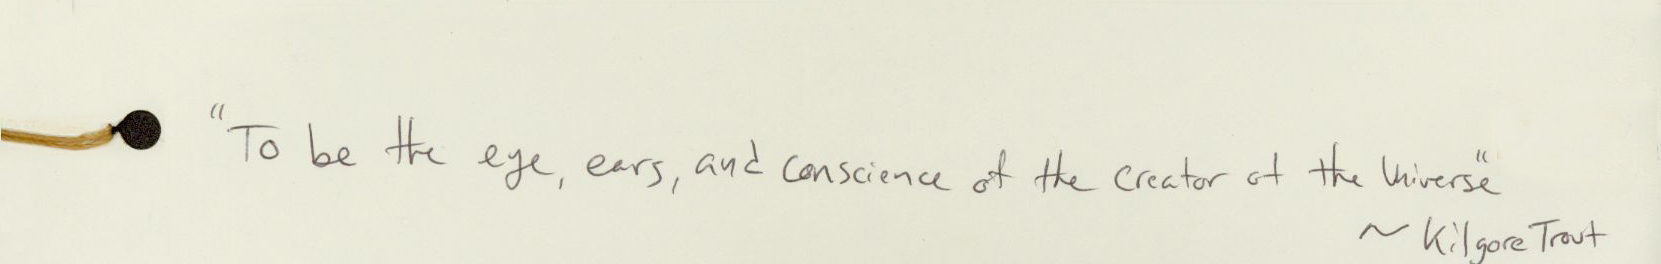 "To be the eye, ears, and conscience of the Creator of the Universe"
~ Kilgore Trout